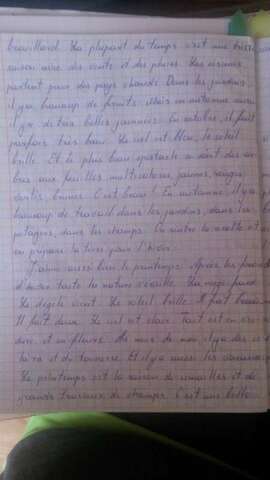 brouillard. La plupart du temps c'est une triste
saison avec des vents et des pluies. Les oiseaux
partent pour des pays chauds. Dans les jardins
il y a beaucoup de fruits. Mais en automne aussi
il y a de très belles journées. En octobre, il fait
parfois très beau. Le ciel est bleu, le soleil
brille. Et le plus beau spectacle ce sont des ar-
bres aux feuilles multicolores, jaunes, rouges,
vertes, brunes. C'est beau! En automne, il y a
beaucoup de travail dans les jardins, dans les
potagers, dans les champs. On rentre la récolte et on
prépare la terre pour l'hiver.
J'aime aussi bien le printemps. Après les
d'hiver toute la nature s'éveille. La neige fond.
Le dégele vient. Le soleil brille. Il fait beau.
Il fait doux. Le ciel est clair. Tout est en
dure, et en fleurs. Au mois de mai il y a des
et du tonnerre. Et il y a aussi les
Le printemps est la saison de semailles et de
grands travaux de champs. C'est une belle